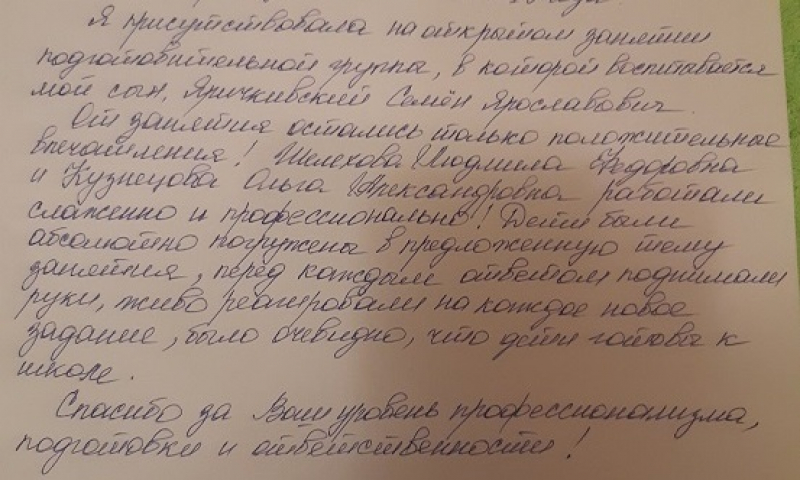 Я присутствовала на открытом занятии
подготовительной группа, в которой воспитывается
мой сын, Яричкивский Семён Ярославович.
От занятия остались только положительные
впечатления! Шелехова Людмила Федоровна
и Кузнецова Ольга Александровна работали
слаженно и профессионально! Дети были
абсолютно погружены в предложенную тему
занятия, перед каждым ответом поднимали
руки, живо реагировали на каждое новое
задание, было очевидно, что дети готовы к
школе.
Спасибо за Ваш уровень профессионализма,
подготовки и ответственности!